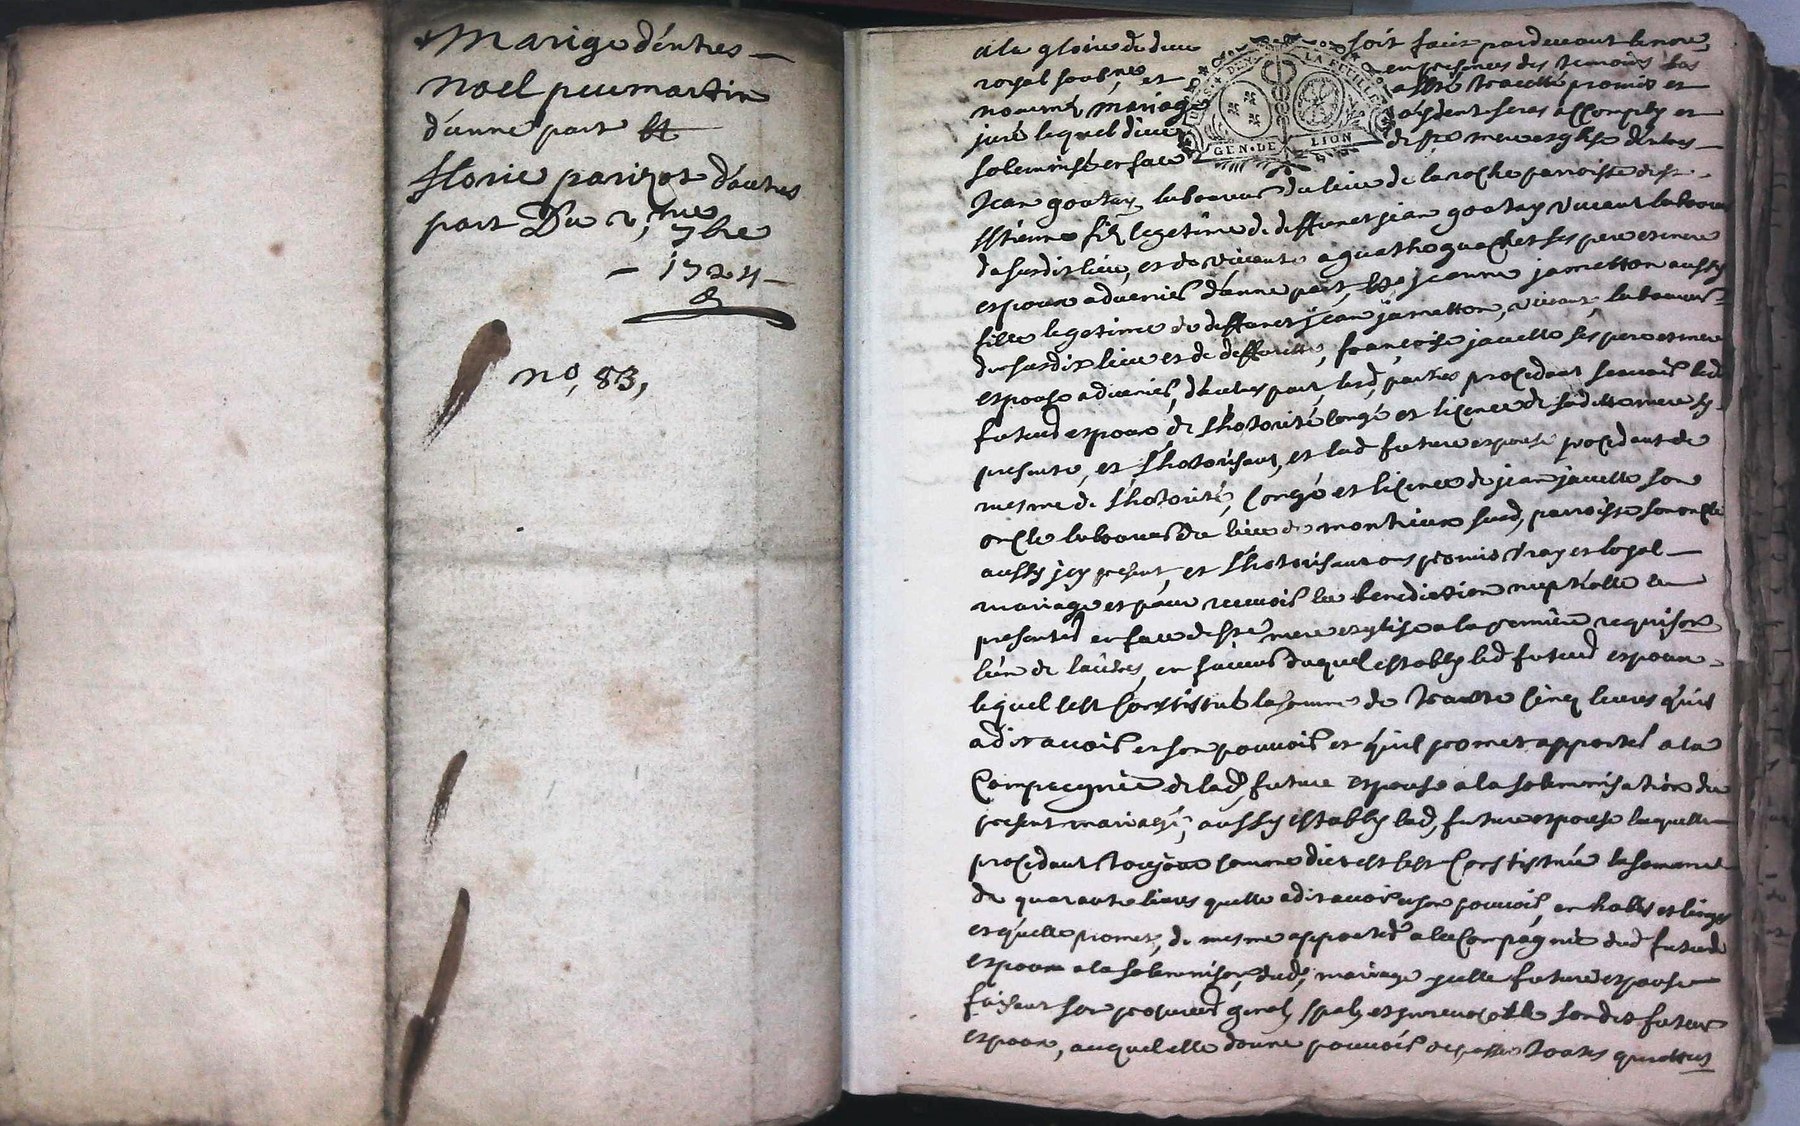 Mariage d'entres
noel peumartin
d'une part et
florie parizot d'autres
part Du 2, 7bre
1724
no, 83,
a la gloire de dieu soit faict pardevant le no.re
royal soubne et en presences des temoins bas
nommés mariage a esté traicté promis et
juré lequel dieu aydent seras accomply et
solemnisé en face de s.te mere esglise d'entres
GEN. DE LION
LA FEUILLE
Jean goutay laboureur du lieu de la roche parroisse de st
Estienne fils legetime de deffunct jean goutay vivant laboureur
dasusdit lieu, et de vivante agathe guachet ses pere et mere
espoux advenir d'une part, et jeanne jametton aussy
fille legetime de deffunct jean jametton, vivant, laboureur
du susdit lieu et de deffuncte, francoise javelle ses pere et mere
espouse advenir, d'autres part, lesd, parties procedant scavoir led
futeud espoux de l'hotorité congé et licence de sa ditte mere cy
presente, et l'hotorisant, et lad future espouse procedant de
mesme de l'hotorité, congé et licence de jean javelle son
oncle laboureur du lieu de montrieux susd, parroisse son oncle
aussy icy present, et l'hotorisant ont promis vray et loyal
mariage et pour recevoir la benediction nuptialle le
presenter en face de ste mere esglise a la premiere requision
l'un de l'autres, en faveur duquel estably led futeud espoux
lequel s'est constitué la somme de trante cinq livres qu'il
a dit avoir en son pouvoir et qu'il promet apporter a la
Compagnie de lad, future espouse a la solemnisation du
present mariage, aussy estably lad, future espouse laquelle
procedant toujour comme dict est s'est constituée la somme
de quarante livres quelle a dit avoir en son pouvoir, en habits et linges
et qu'elle promet, de mesme apporter a la Compagnie dud futeud
espoux a la solemnison, dud, mariage icelle future espouse
faisant son procureur g.nal spal et irrevocable sondit futeur
espoux, auquel elle donne pouvoir de passer toutes quittus